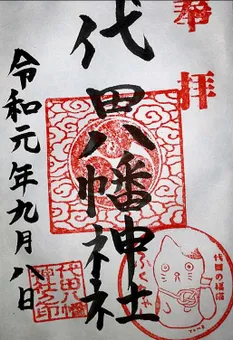 奉拝
代田八幡神社
令和元年九月八日
代田八幡
神社之印
代田の福猫